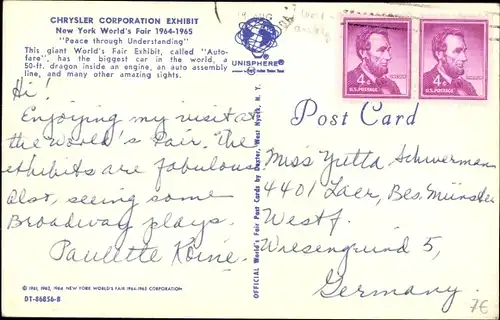 CHRYSLER CORPORATION EXHIBIT
New York World's Fair 1964-1965
"Peace through Understanding"
This giant World's Fair Exhibit, called "Auto-
fare", has the biggest car in the world, a
50-ft. dragon inside an engine, an auto assembly
line, and many other amazing sights.
Hi!
Enjoying my visit at
the World's Fair. The
exhibits are fabulous
Also, seeing some
Broadway plays.
Paulette Koine
© 1961, 1962, 1964 NEW YORK WORLD'S FAIR 1964-1965 CORPORATION
DT-86856-B
UNISPHERE®
OFFICIAL World's Fair Post Cards by Dexter, West Nyack, N. Y.
AUG
4¢
U.S. POSTAGE
4¢
U.S. POSTAGE
Post Card
Miss Yutta Schwerman
4401 Laer, Bes. Münster
Westf.
Wiesengrund 5,
Germany.
7€